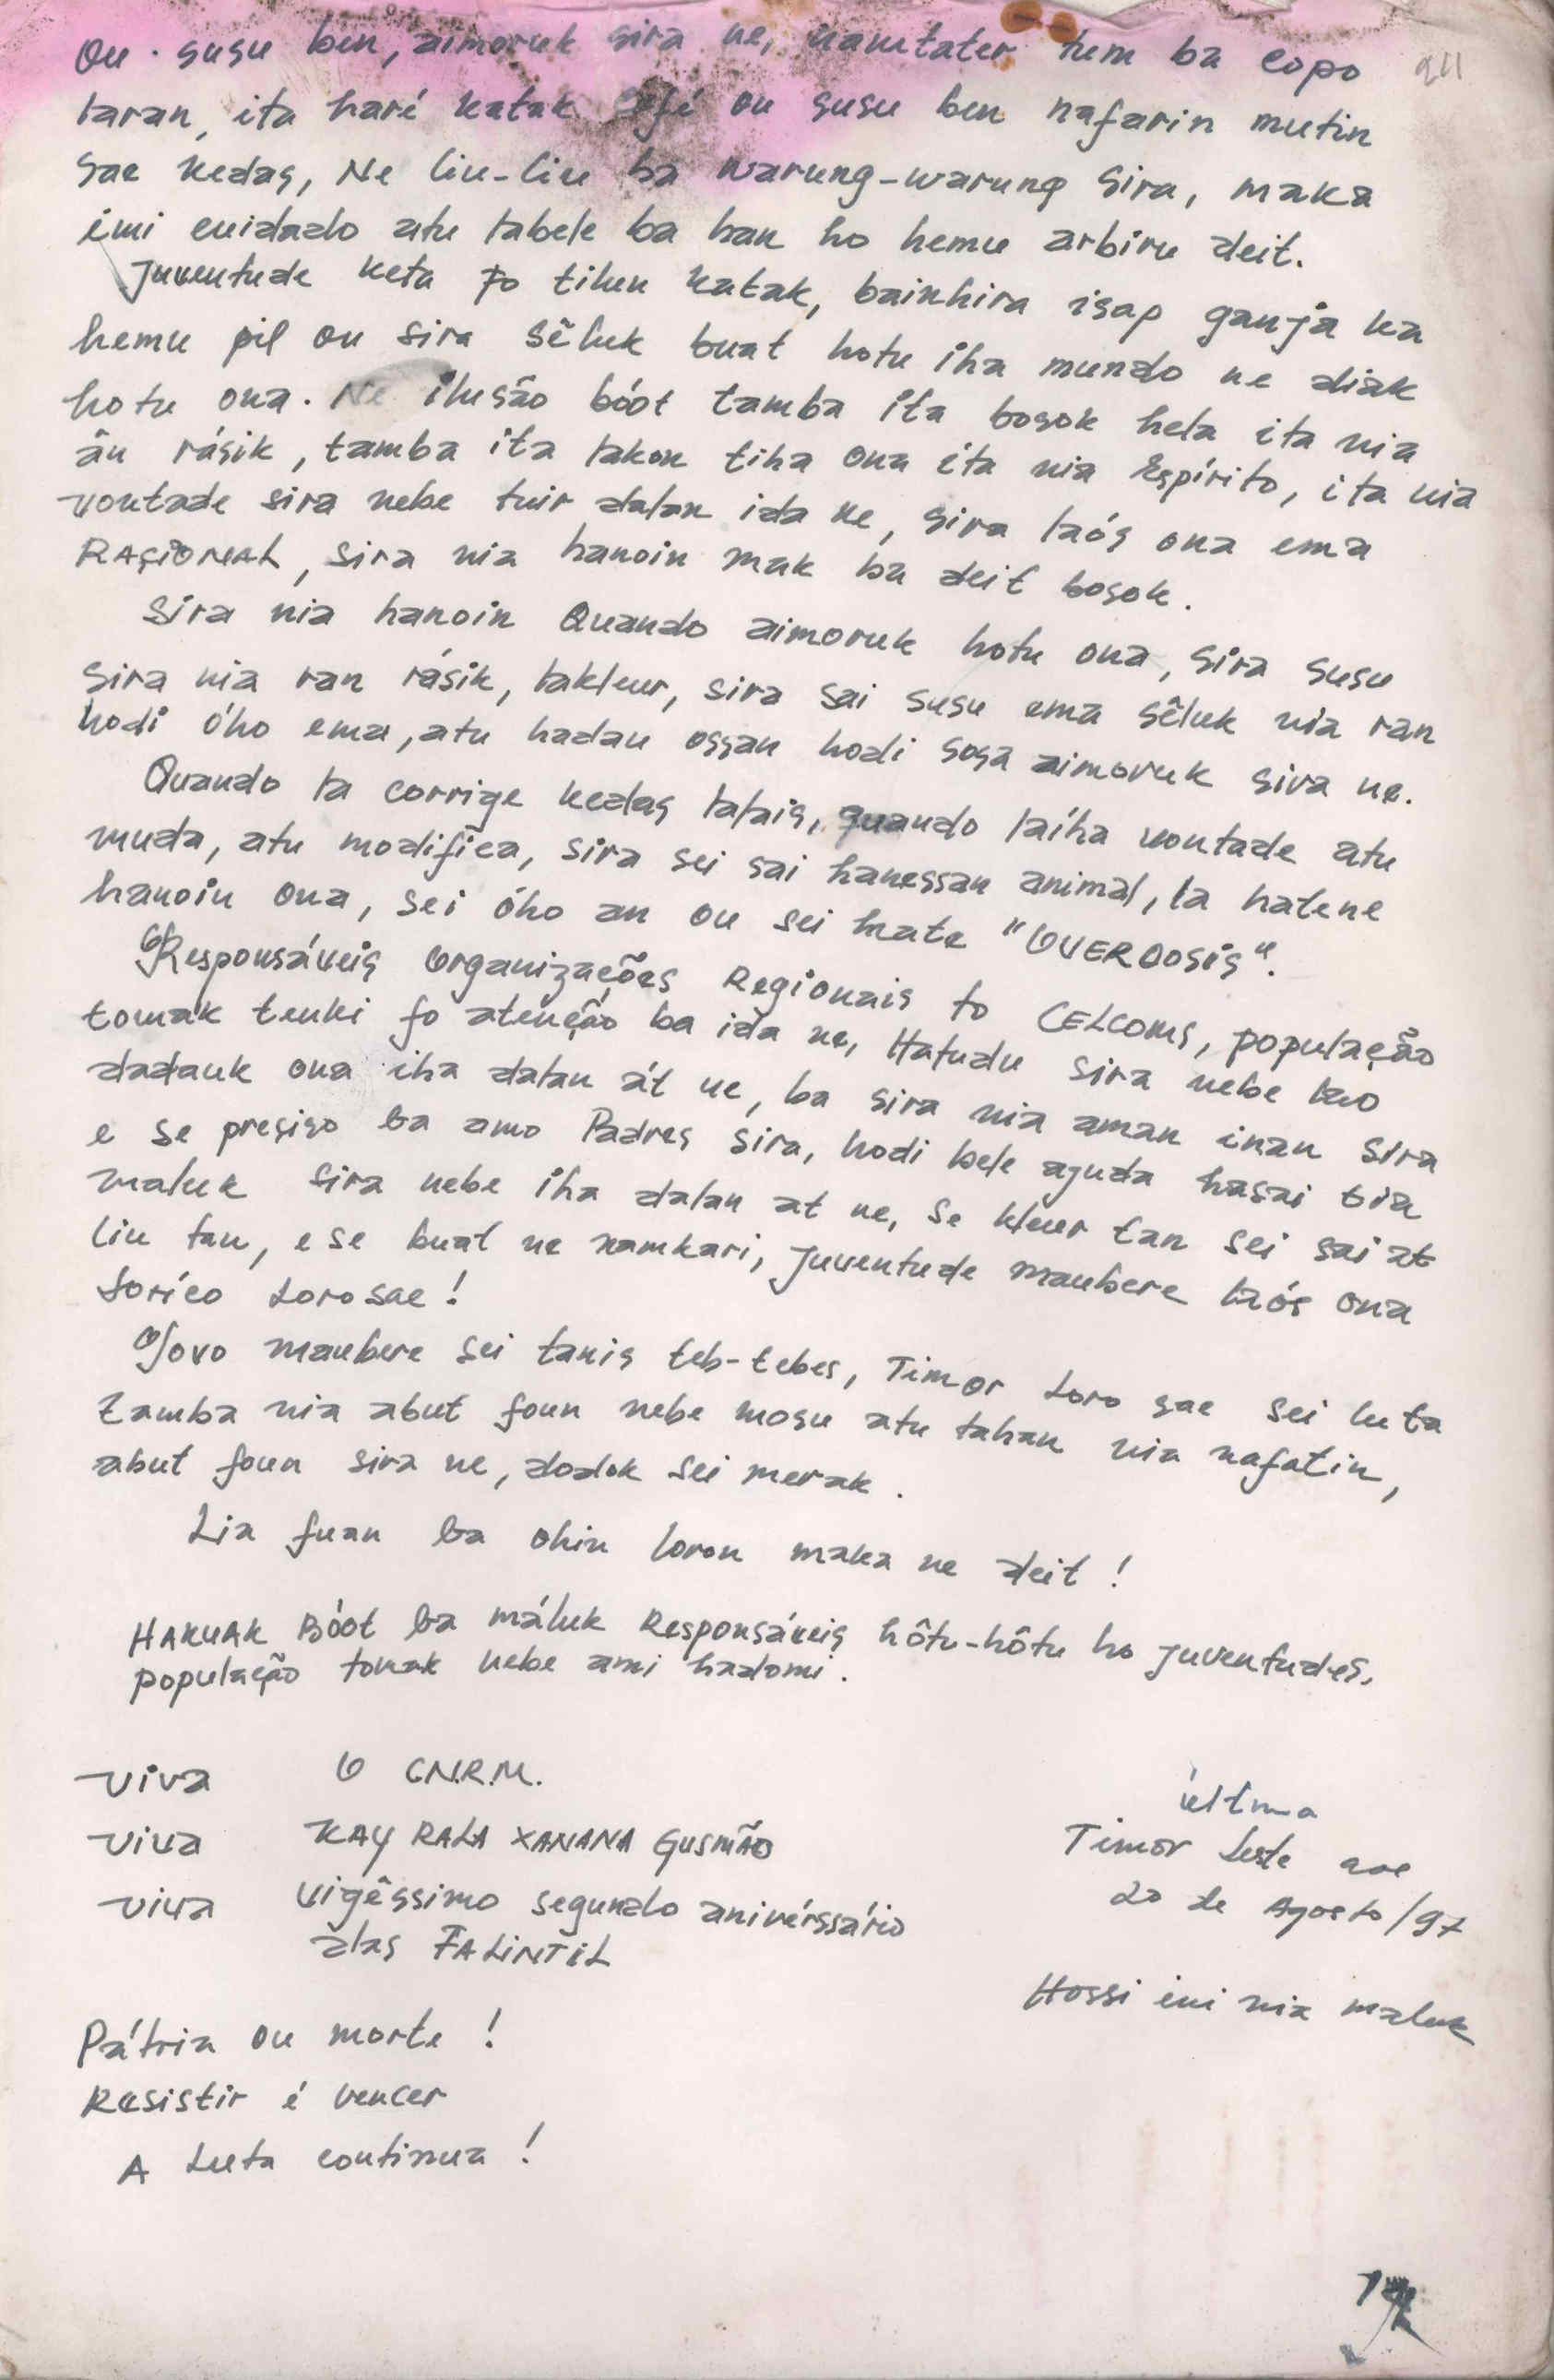 ou susu ben, aimoruk sira ne, namtater tem ba copo 911
laran, ita haré katak Café ou susu ben nafarin mutin
sae kedas, Ne liu-liu ba warung-warung sira, maka
imi cuidado atu labele ba han ho hemu arbiru deit.
Juventude keta fo tilun katak, bainhira isap ganja ka
hemu pil ou sira sêluk buat hotu iha mundo ne diak
hotu ona. Ne ilusão bóot tamba ita bosok hela ita nia
ân rásik, tamba ita lakon tiha ona ita nia Espírito, ita nia
vontade sira nebe tuir dalan ida ne, sira laós ona ema
RAÇIONAL, sira nia hanoin mak ba deit bosok.
Sira nia hanoin Quando aimoruk hotu ona, sira susu
sira nia ran rásik, lakleur, sira sai susu ema sêluk nia ran
hodi óho ema, atu hadau ossan hodi sosa aimoruk sira ne.
Quando la corrige kedas lalais, quando laíha vontade atu
muda, atu modifica, sira sei sai hanessan animal, la hatene
hanoin ona, sei óho an ou sei mate "OVERDOSIS".
Responsáveis Organizações Regionais to CELCOMS, população
tomak tenki fo atenção ba ida ne, Hatudu sira nebe lao
dadauk ona iha dalan át ne, ba sira nia aman inan sira
e se presiso ba amo Padres sira, hodi bele ajuda hasai tia
maluk sira nebe iha dalan at ne, se kleur tan sei sai at
liu tan, e se buat ne namkari, Juventude maubere laós ona
Loríco Lorosae!
Povo maubere sei tanis teb-tebes, Timor Loro sae sei luta
tamba nia abut foun nebe mosu atu tahan nia nafatin,
abut foun sira ne, dodok sei merak.
Lia fuan ba ohin loron maka ne deit!
HAKUAK Bóot ba máluk Responsáveis hôtu-hôtu ho juventudes,
população tomak nebe ami hadomi.
viva O C.N.R.M.
viva KAY RALA XANANA GUSMÃO
viva vigêssimo segundo anivérssário
das FALINTIL
últma
Timor Leste aos
20 de Agosto/97
Hossi imi nia maluk
Pátria ou morte!
Resistir é vencer
A Luta continua!